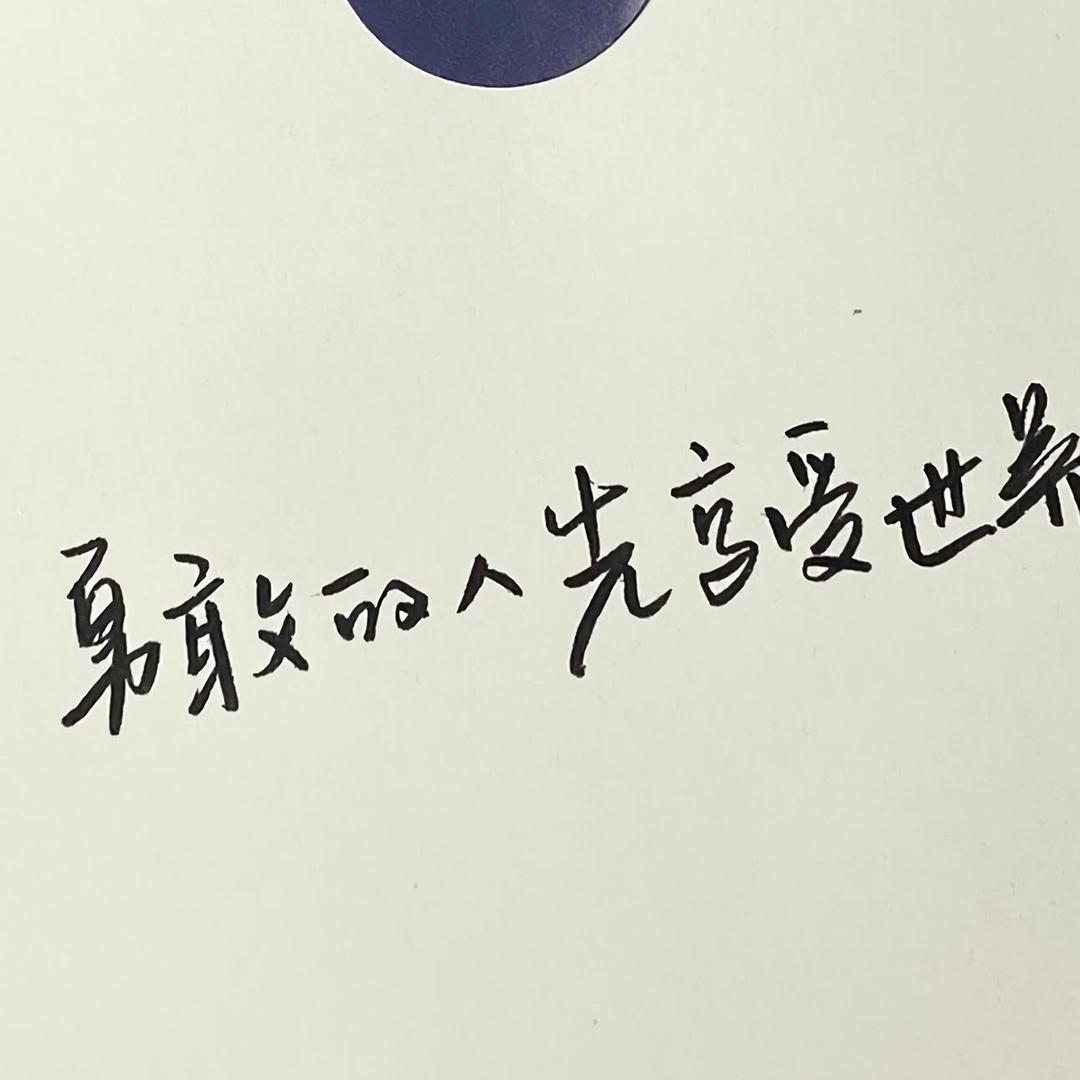 勇敢的人先享受世界